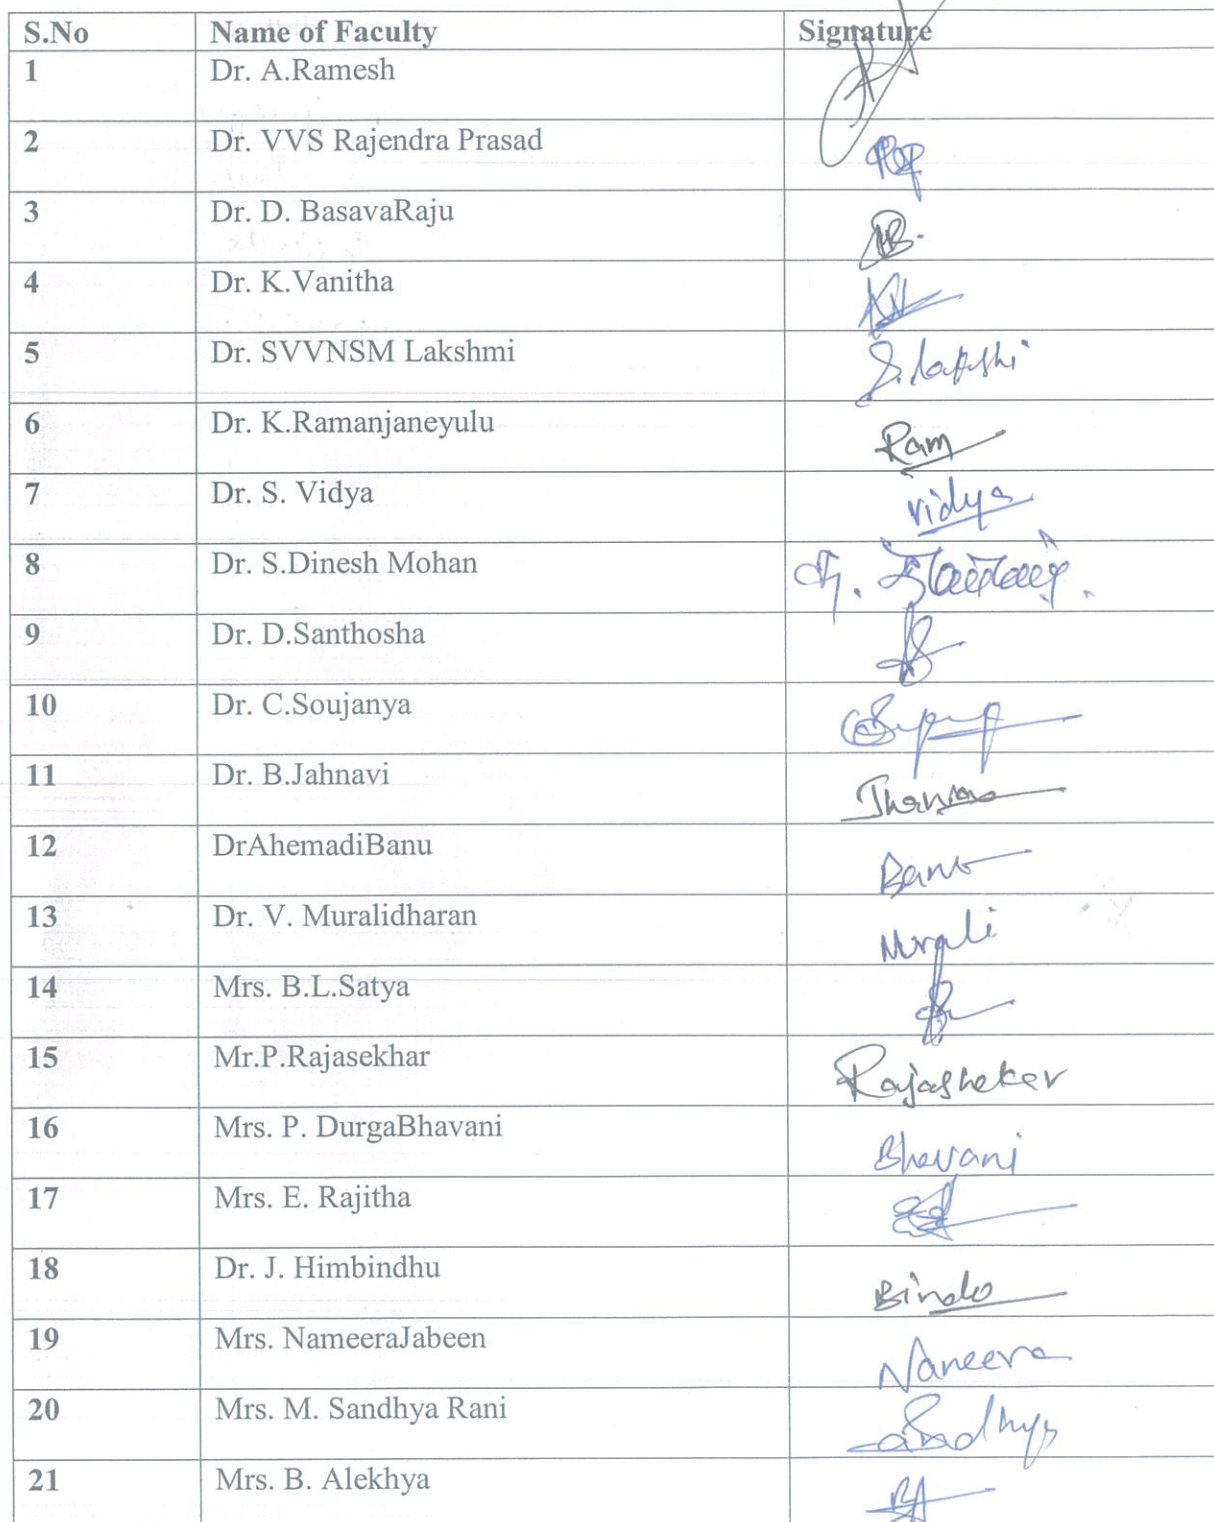 S.No Name of Faculty Signature
1 Dr. A.Ramesh
2 Dr. VVS Rajendra Prasad
3 Dr. D. BasavaRaju
4 Dr. K.Vanitha
5 Dr. SVVNSM Lakshmi
6 Dr. K.Ramanjaneyulu Ram
7 Dr. S. Vidya vidya
8 Dr. S.Dinesh Mohan
9 Dr. D.Santhosha
10 Dr. C.Soujanya
11 Dr. B.Jahnavi
12 DrAhemadiBanu Banu
13 Dr. V. Muralidharan Murali
14 Mrs. B.L.Satya
15 Mr.P.Rajasekhar Rajasheker
16 Mrs. P. DurgaBhavani Bhavani
17 Mrs. E. Rajitha
18 Dr. J. Himbindhu Bindo
19 Mrs. NameeraJabeen Nameera
20 Mrs. M. Sandhya Rani Sandhya
21 Mrs. B. Alekhya BA